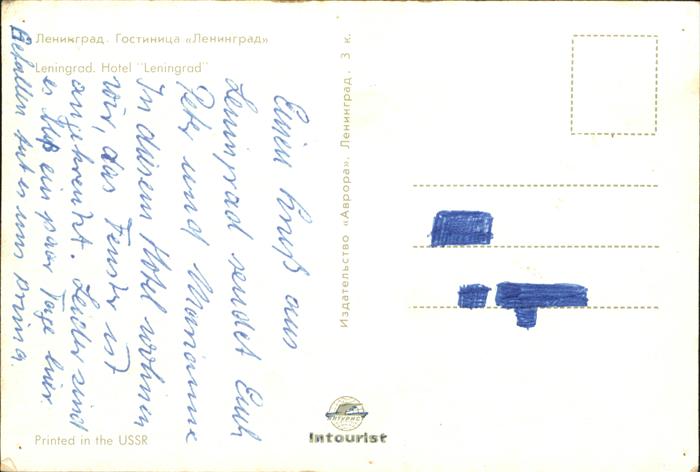 Ленинград. Гостиница «Ленинград»
Leningrad. Hotel "Leningrad"
Einen Gruß aus
Leningrad sendet Euch
Peter und Marianne
In diesem Hotel wohnen
wir, das Fenster ist
angekreuzt. Leider sind
es bloß ein paar Tage hier.
Gefallen tut es uns prima.
Издательство «Аврора». Ленинград. 3 к.
ИНТУРИСТ
Intourist
Printed in the USSR